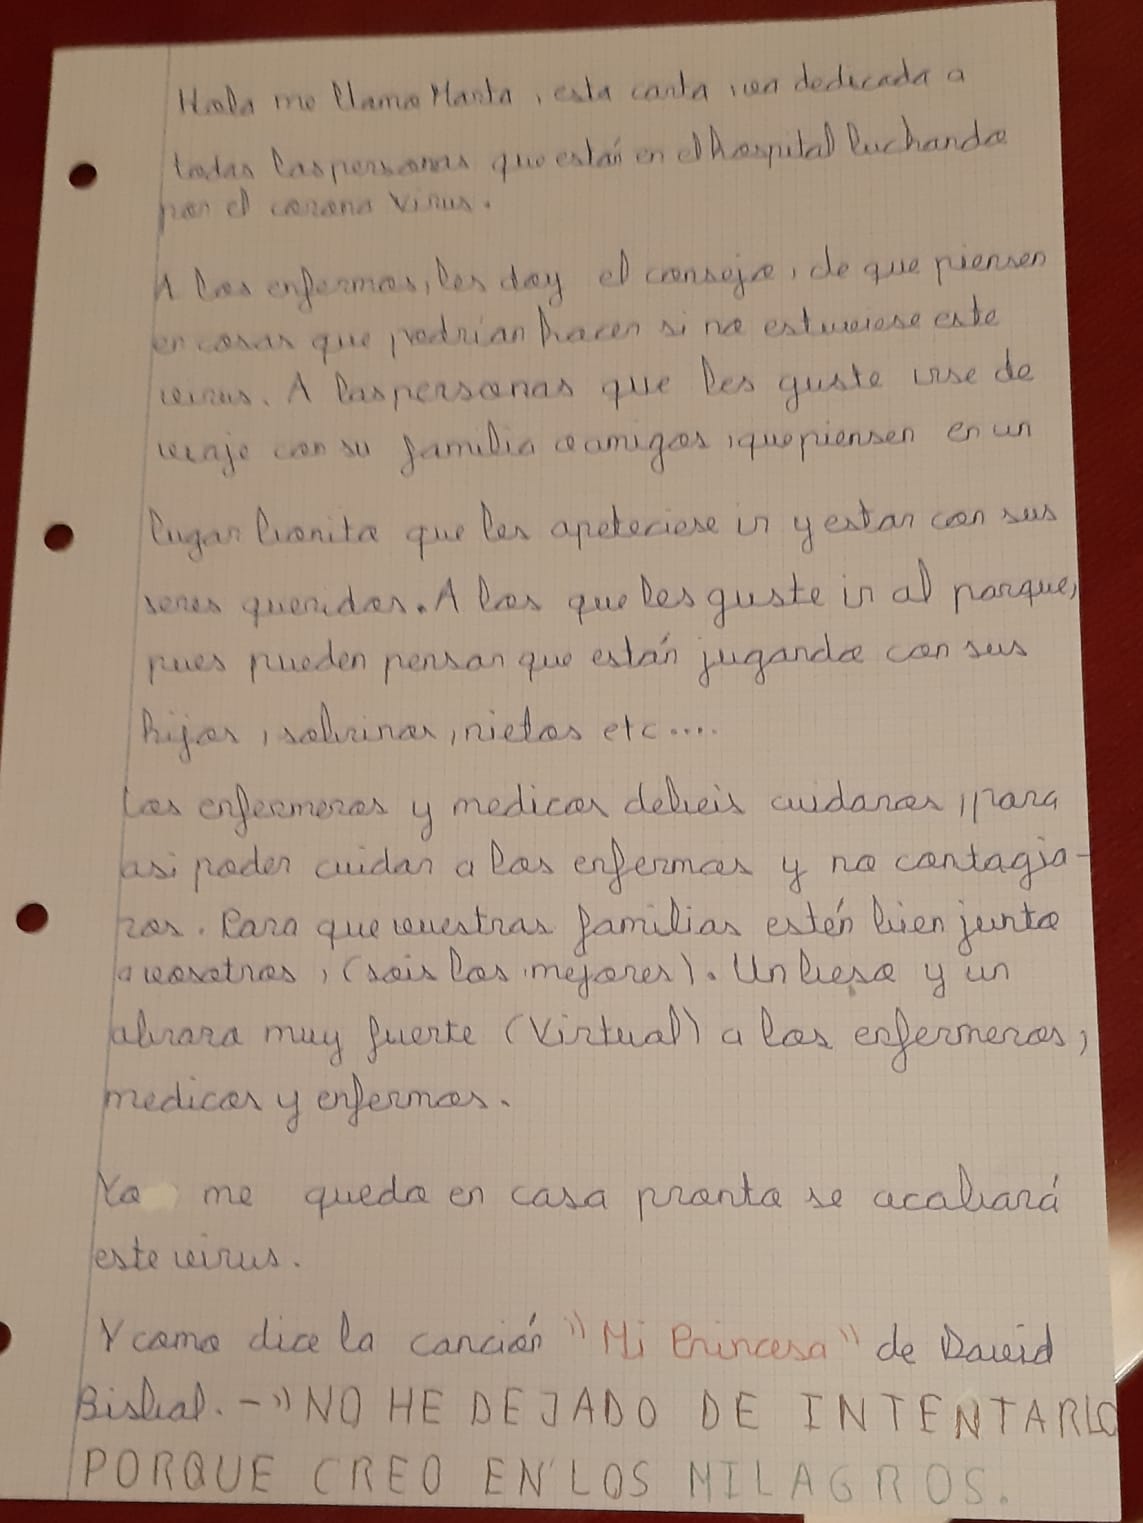 Hola me llamo Marta, esta carta va dedicada a
todas las personas que están en el hospital luchando
por el corona virus.
A los enfermos, les doy el consejo, de que piensen
en cosas que podrían hacer si no estuviese este
virus. A las personas que les guste irse de
viaje con su familia o amigos, que piensen en un
lugar bonito que les apeteciese ir y estar con sus
seres queridos. A los que les guste ir al parque,
pues pueden pensar que están jugando con sus
hijos, sobrinos, nietos etc....
Los enfermeros y medicos debeis cuidaros, para
asi poder cuidar a los enfermos y no contagia-
ros. Para que vuestras familias estén bien junto
a vosotros, (sois los mejores). Un beso y un
abrazo muy fuerte (Virtual) a los enfermeros,
medicos y enfermos.
Yo me quedo en casa pronto se acabará
este virus.
Y como dice la canción "Mi Princesa" de David
Bisbal. -"NO HE DEJADO DE INTENTARLO
PORQUE CREO EN LOS MILAGROS.